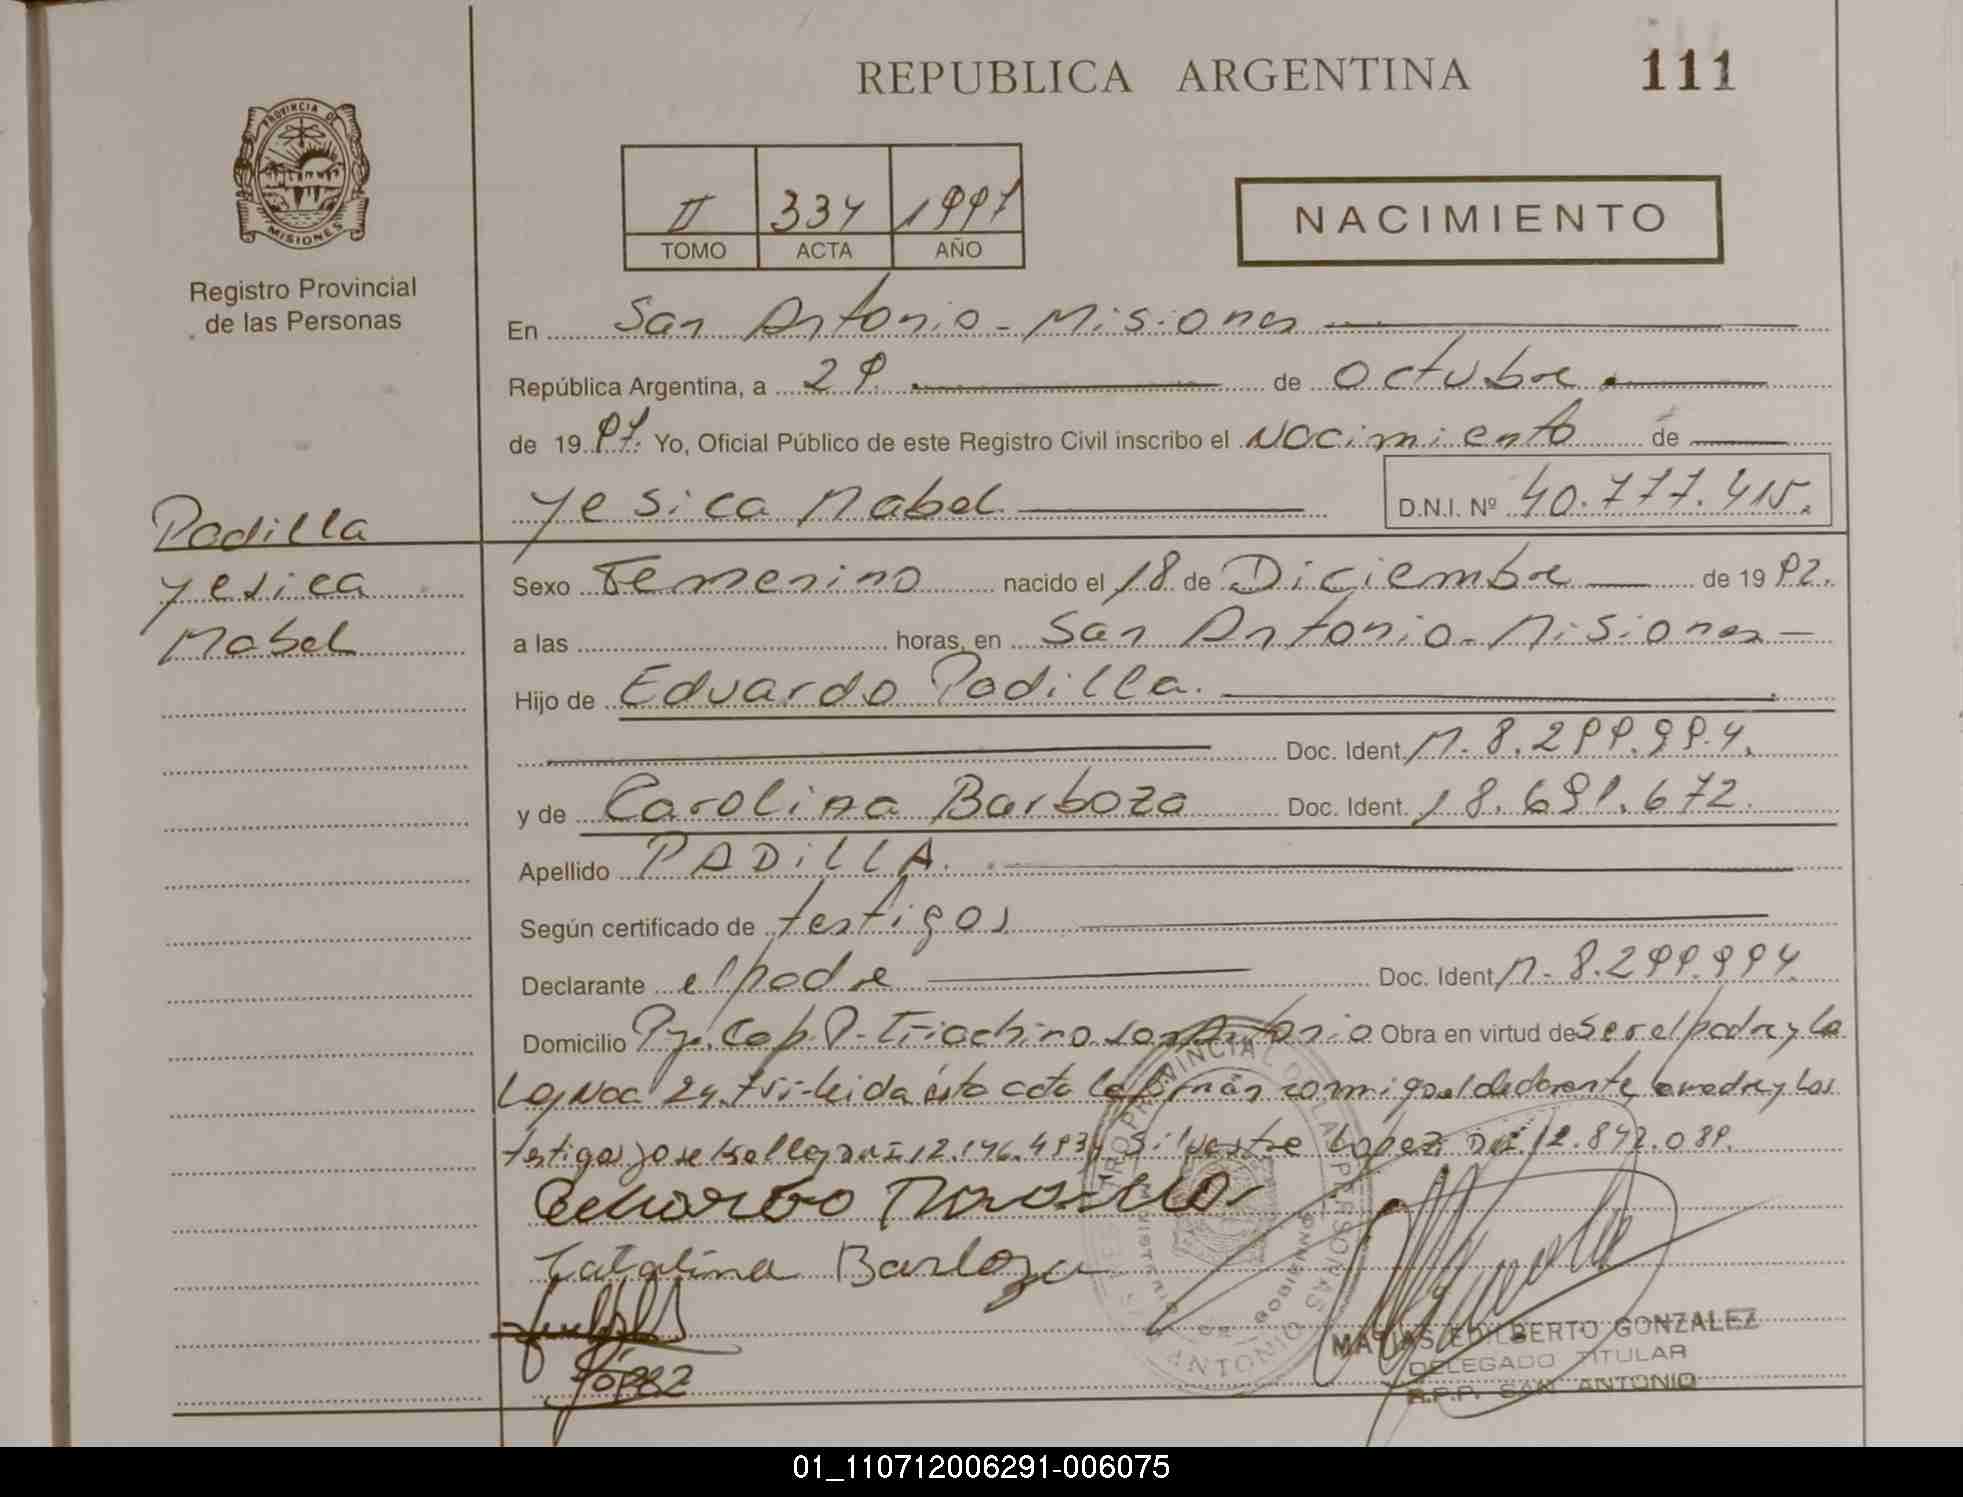 REPUBLICA ARGENTINA
111
PROVINCIA DE
MISIONES
Registro Provincial
de las Personas
II 334 1997
TOMO ACTA AÑO
NACIMIENTO
En San Antonio - Misiones
República Argentina, a 29 de Octubre
de 19 97. Yo, Oficial Público de este Registro Civil inscribo el Nacimiento de
Yesica Mabel D.N.I. Nº 40.777.415.
Padilla
Yesica
Mabel
Sexo Femenino nacido el 18 de Diciembre de 19 92.
a las horas, en San Antonio - Misiones -
Hijo de Eduardo Padilla.
Doc. Ident. M. 8.299.994.
y de Carolina Barboza Doc. Ident. 18.691.672.
Apellido PADILLA.
Según certificado de testigos
Declarante el padre Doc. Ident. M. 8.299.994.
Domicilio San Antonio Obra en virtud de ser el padre y la
Ley Nac 24. leida esta acta la firman conmigo el declarante, madre y los
testigos Jose 12.146.493 y Silvestre Lopez DNI. 12.842.089.
Catalina Barboza
López
MATIAS EDILBERTO GONZALEZ
DELEGADO TITULAR
R.P.P. SAN ANTONIO
01_110712006291-006075